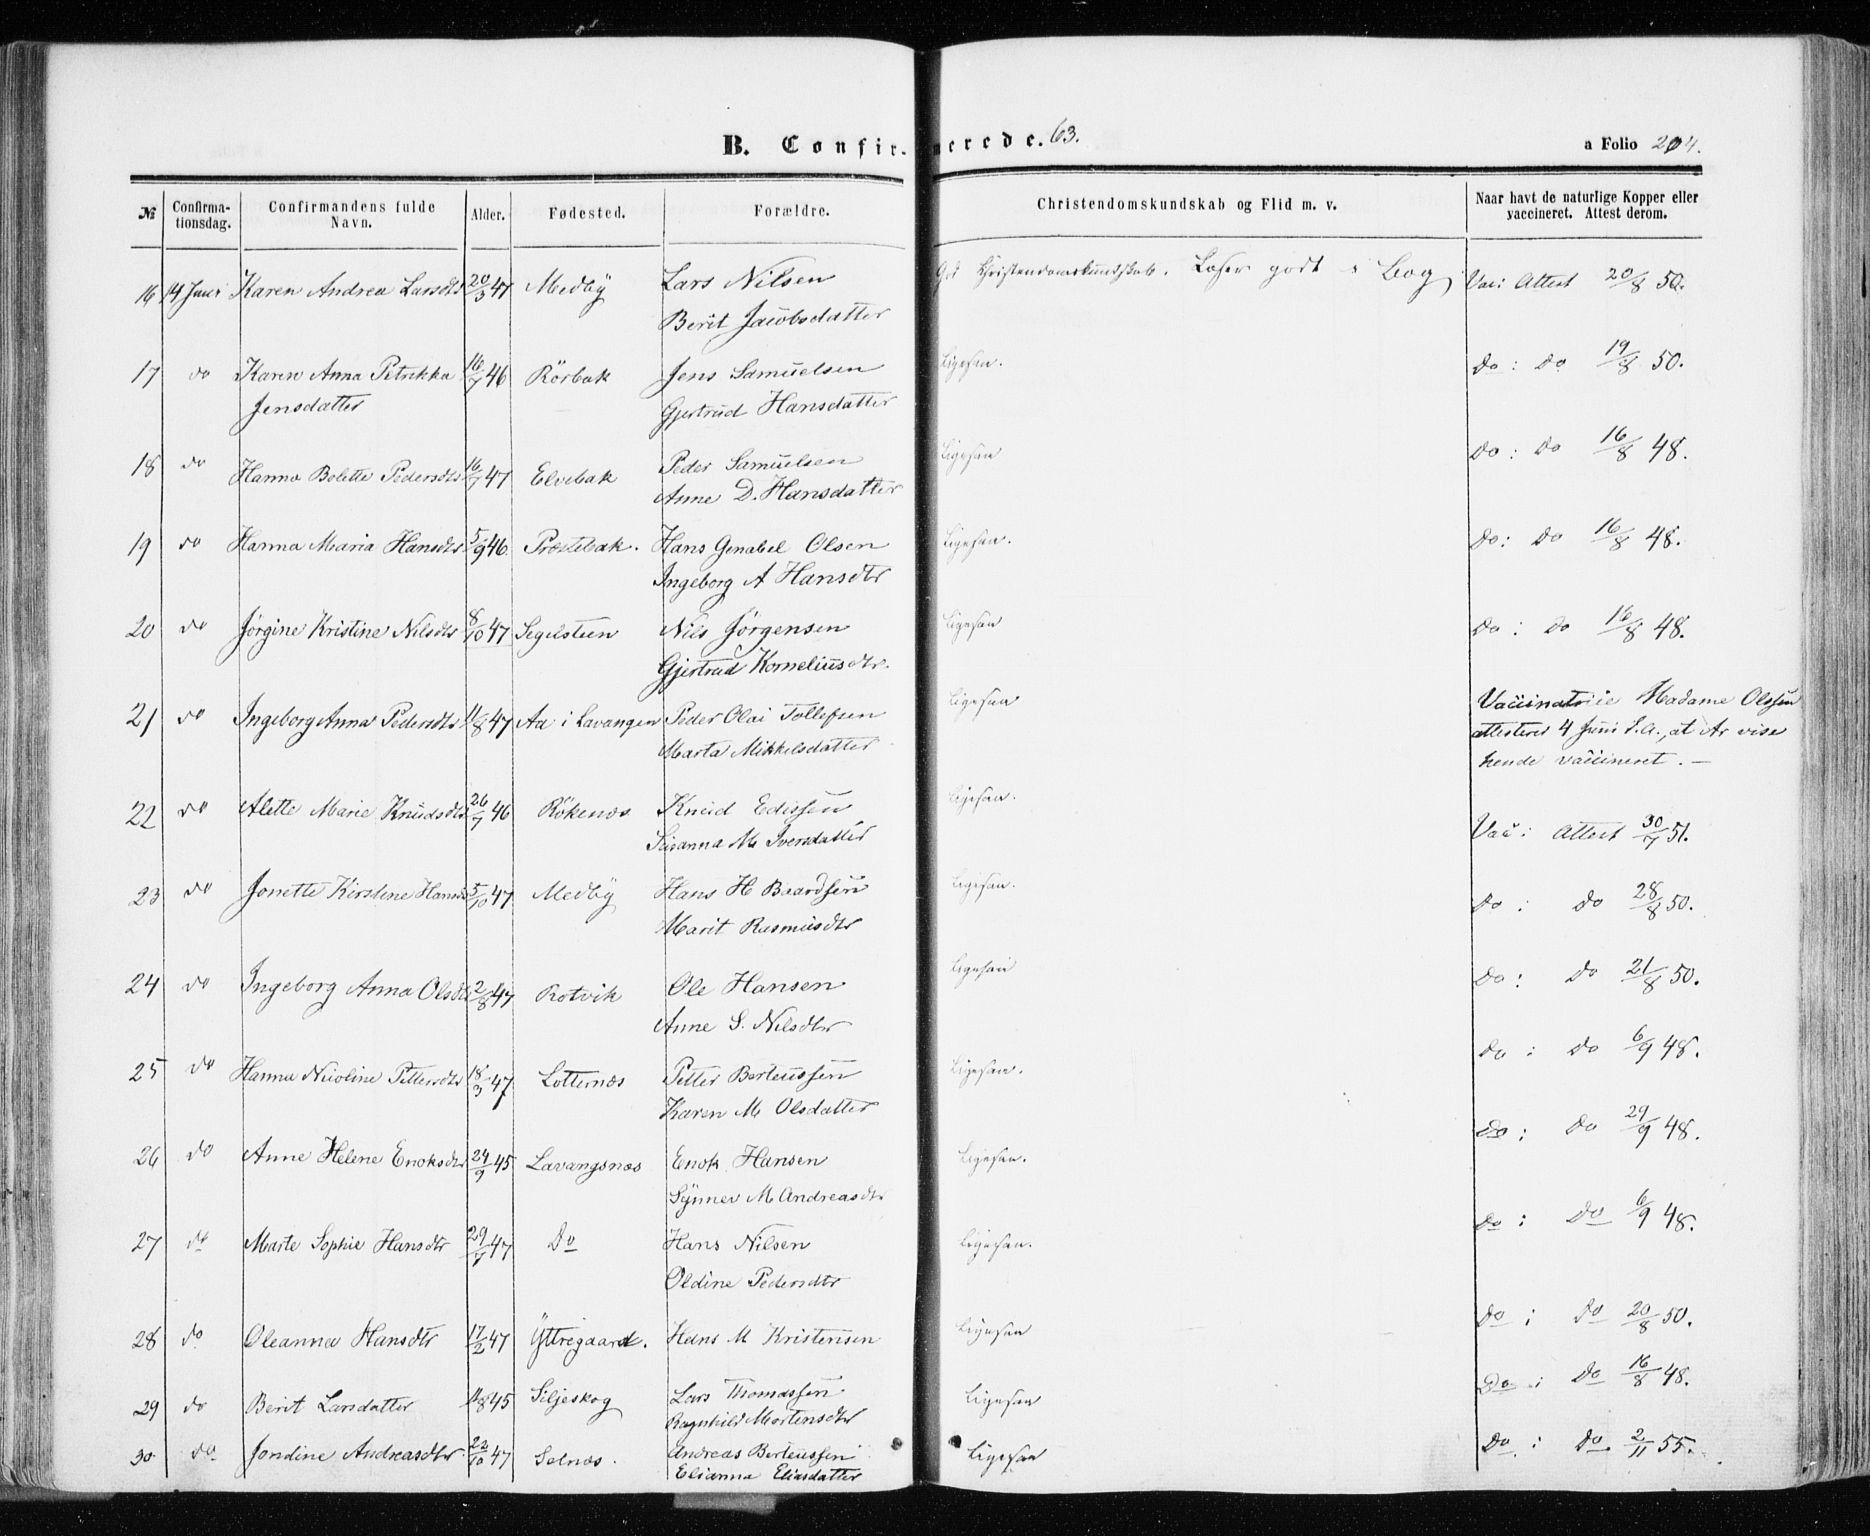 B. Confirmerede. 63.
a Folio 204.
№ Confirmationsdag. Confirmandens fulde Navn. Alder. Fødested. Forældre. Christendomskundskab og Flid m. v. Naar havt de naturlige Kopper eller vaccineret. Attest derom.
16 14 Juni Karen Andrea Larsdtr 20/3 47 Medby Lars Nilsen God Christendomskundskab. Læser godt i Bog Vac: Attest 20/8 50.
Berit Jacobsdatter
17 do Karen Anna Petrikka 16/7 46 Rörbak Jens Samuelsen Ligesaa. Do: Do 19/8 50.
Jensdatter Gjertrud Hansdatter
18 do Hanna Bolette Pedersdtr 16/7 47 Elvebak Peder Samuelsen Ligesaa Do: Do 16/8 48.
Anne D. Hansdatter
19 do Hanna Maria Hansdtr 5/9 46 Præstebak. Hans Genabel Olsen Ligesaa. Do: Do 16/8 48.
Ingeborg A Hansdtr
20 do Jørgine Kristine Nilsdtr 8/10 47 Segelsteen Nils Jörgensen Ligesaa Do: Do 16/8 48.
Gjertrud Korneliusdtr.
21 do Ingeborg Anna Pedersdtr 11/8 47 Aa i Lavangen Peder Olai Tollefsen Ligesaa Vaccinatrice Madame Olssen
Marta Mikkelsdatter attesterer 4 Juni S.A., at
hende vaccineret. —
22 do Alette Marie Knudsdtr 26/7 46 Rökenæs Knud Edissen Ligesaa. Vac: Attest 30/7 51.
Susanna M Iversdatter
23 do Jonette Kirstene Hansd 5/10 47 Medby Hans H Baardsen Ligesaa. Do: Do 28/8 50.
Marit Rasmusdtr
24 do Ingeborg Anna Olsdtr 2/8 47 Rotvik Ole Hansen Ligesaa Do: Do 21/8 50.
Anne S. Nilsdtr
25 do Hanna Nicoline Pettersdtr 18/3 47 Lotternæs Petter Berteussen Ligesaa. Do: Do 6/9 48.
Karen M Olsdatter
26 do Anne Helene Enoksdtr 24/9 45 Lavangsnæs Enok Hansen Ligesaa. Do: Do 29/9 48.
Synnev M Andreasdtr
27 do Marte Sophie Hansdtr 29/7 47 Do Hans Nilsen Ligesaa. Do: Do 6/9 48.
Oldine Pedersdtr
28 do Oleanna Hansdtr 17/2 47 Yttregaard. Hans M Kristensen Ligesaa Do: Do 20/8 50.
29 do Berit Larsdatter 11/8 45 Siljeskog Lars Thomassen Ligesaa Do: Do 16/8 48.
Ragnhild Mortensdtr
30 do Jondine Andreasdtr 22/10 47 Selnæs. Andreas Berteussen Ligesaa Do: Do 2/11 55.
Elianna Eliasdatter